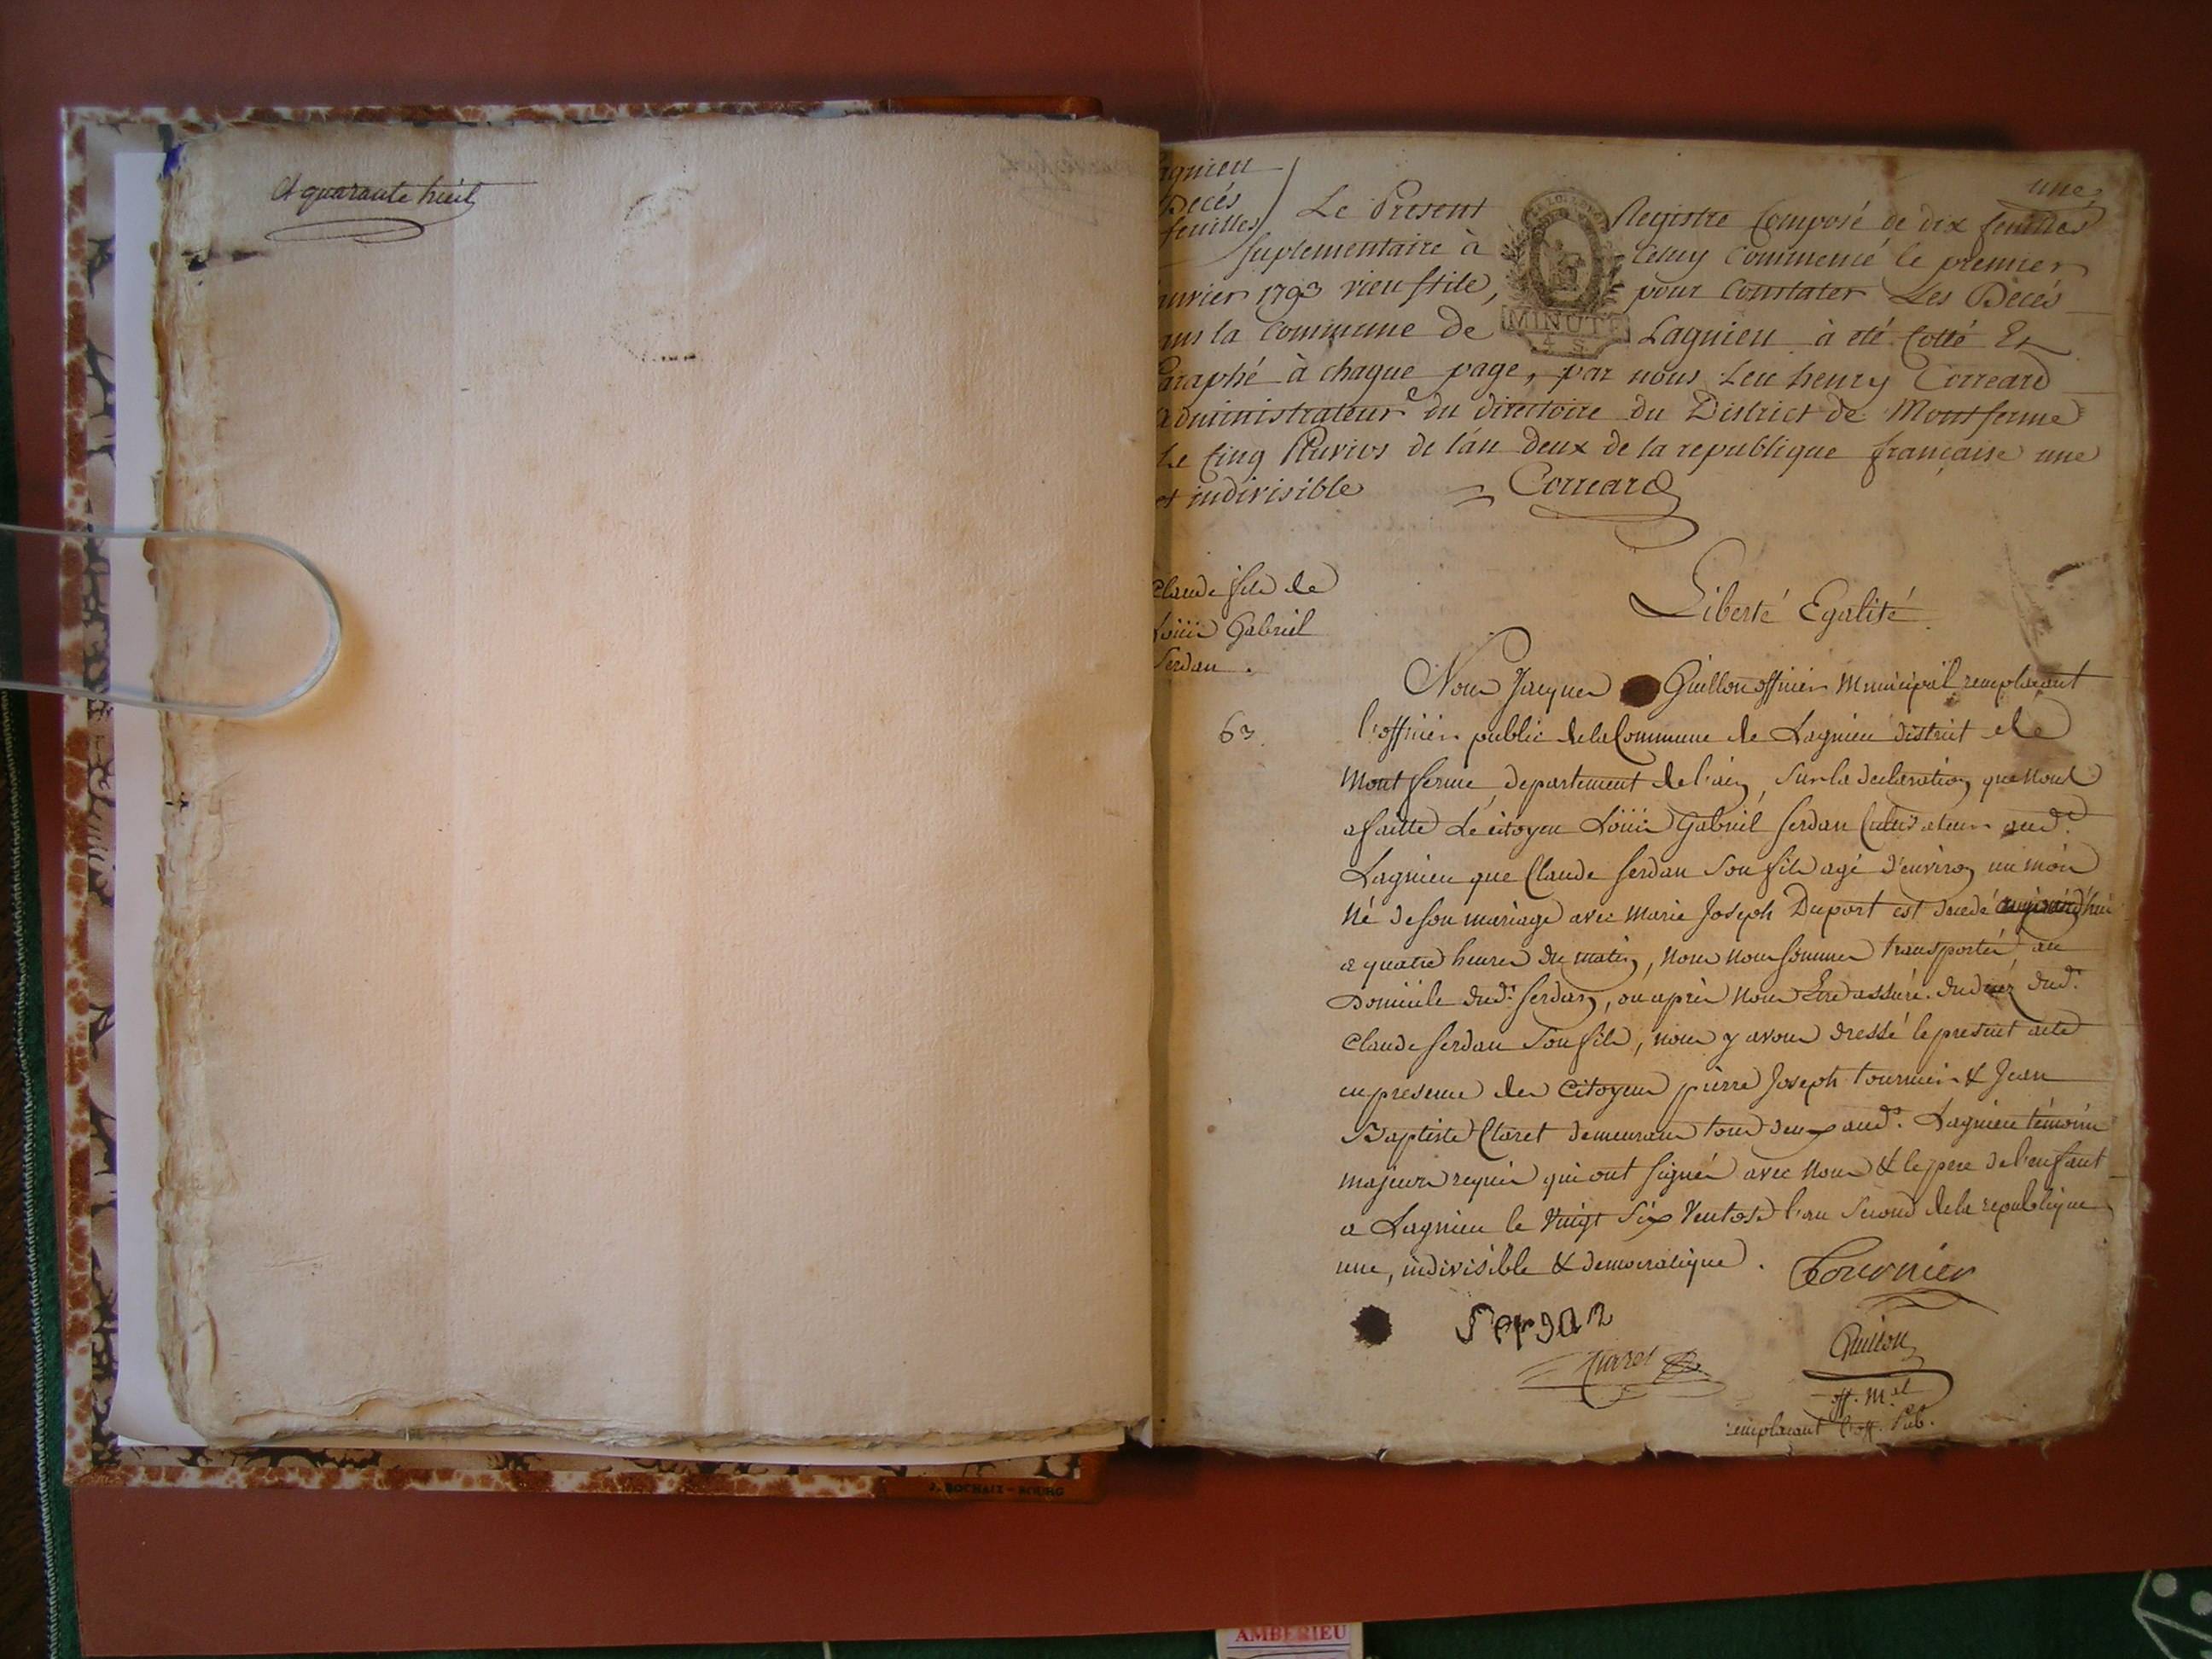 et quarante huit
une
agnien
Decés
feuilles
Le Present Registre Composé de dix feuilles
suplementaire à Celuy Commencé le premier
anvier 1793 vieu stile, pour Constater Les Decés
ans la Commune de Lagnieu à eté Cotté Et
Paraphé à chaque page, par nous Leu henry Correard
administrateur du directoire du District de Montferme
Le Cinq Pluvios de l'an deux de la republique française une
et indivisible = Correard
MINUTE
4. S.
Claude fils de
Loüis Gabriel
Serdan.
63.
Liberté Egalité
Nous Jacques Guillon officier Municipal remplacant
l'officier public de la Commune de Lagnieu district de
Mont ferme, departement de l'ain, sur la declaration que nous
a faitte Le citoyen Loüis Gabriel Serdan Cultivateur aud.
Lagnieu que Claude Serdan son fils agé d'environ un mois
Né de son mariage avec Marie Joseph Duport est decedé aujourd'hui
a quatre heures du matin, nous nous sommes transportés au
Domicile dud.t Serdan, ou après nous Etre assuré du decez dud.t
Claude Serdan son fils, nous y avons dressé le present acte
en presence des Citoyens pierre Joseph tournier & Jean
Baptiste Claret demeurans tous deux aud.t Lagnieu témoins
majeurs requis qui ont signés avec Nous & le pere de l'enfant
a Lagnieu le Vingt Six Ventose l'an Second de la republique
une, indivisible & democratique. Tournier
Serdan
Claret
Guillon
off. M.el
remplacant l'off. Pub.
J. ROCHAIX - BOURG
AMBERIEU